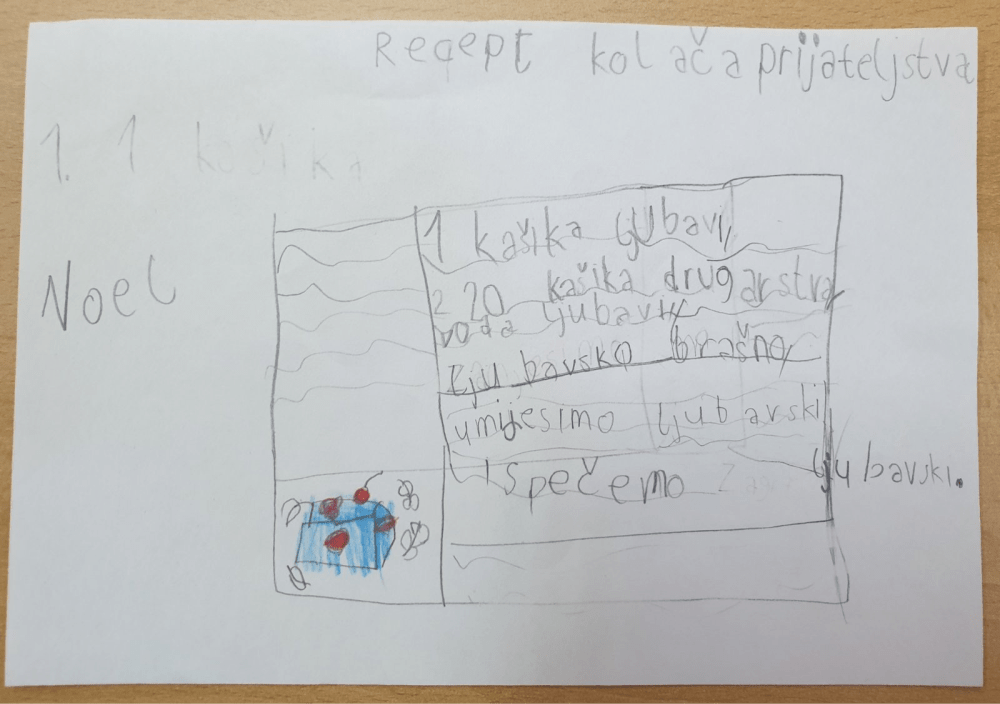 Recept kolača prijateljstva
1. 1 kašika
Noel
1 kašika ljubavi,
2 20 kašika drugarstva
voda ljubavi,
ljubavsko brašno,
umijesimo ljubavski
Ispečemo ljubavski.